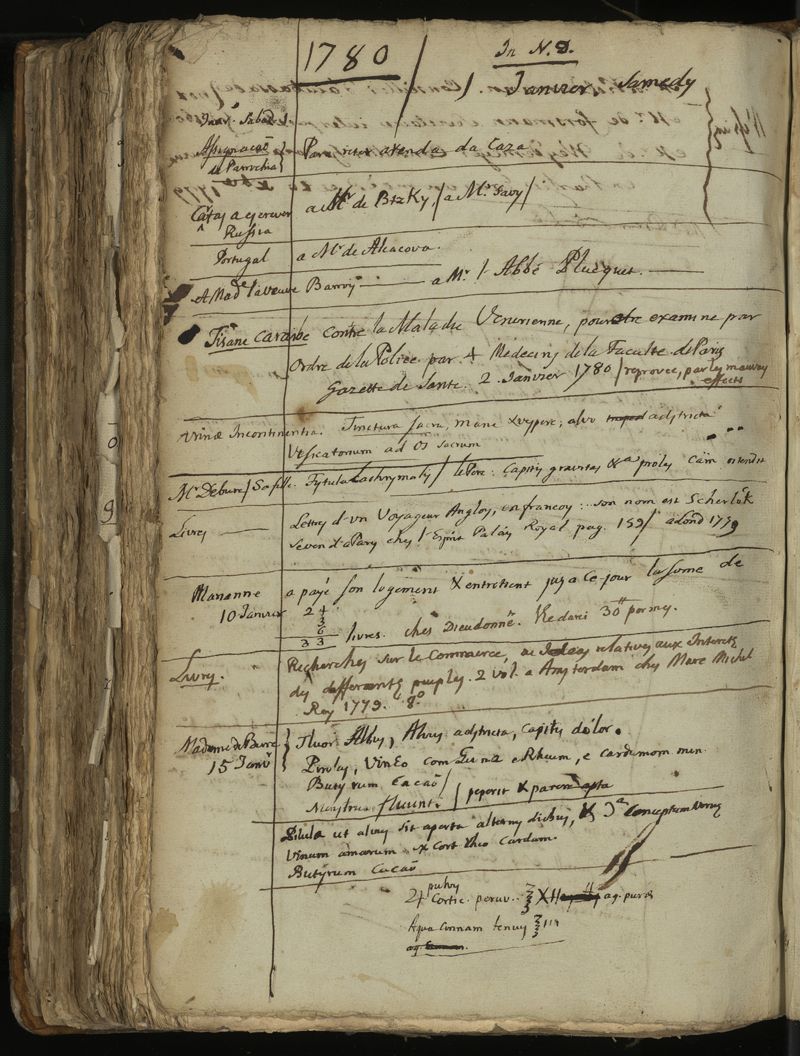 1780 / In N. D.
1 Janvier Samedy
Janv. Sabado
Assignação de Parrochia } Para          a renda da Caza
Cartas a escrever Russia a Mr de Btzky / a Mr Savy /
Portugal a Mr de Alacova.
A Made la veuve Barroy — a Mr l'Abbé Pluquet. —
Tisane Caraibe contre la Maladie Venerienne, pour etre examine par
ordre de la Police par 4 Medecins de la Faculte de Paris
Gazette de Sante. 2. Janvier 1780 / reprovee, par les mauvais
effects
Urinæ Incontinentia. Tinctura sacra, mane & vespere, alvo adstricta
Vesicatorium ad Os sacrum
Mr Debure / Sa fille. Fistula Lachrymalis / le Pere. Capitis gravitas
Livres — Lettres d'un Voyageur Anglois, en françois :: son nom est Scherlok
se vend a Paris ches l'Esprit Palais Royal pag. 159 / a Lond 1779
Marianne a payé son logement & entretient jusq a ce jour la some de
10 Janvier 24
3
6
33 livres. ches Dieudonné. Redevi 30 # par mes.
Livres. Recherches sur le Commerce, ou Idées relatives aux Interets
des differents peuples. 2 vol. a Amsterdam ches Marc Michel
Rey 1779. 8º
Madame de Burré } Fluor Albus, Alvus adstricta, Capitis dolor.
15 Janvr } Pirolas, Vinho com Quina e Rheum, e cardamom min.
Butyrum Cacao /
Menstrua fluunt / peperit & parere apta
Pilulæ ut alvus sit aperta alternis diebus, &
Vinum amarum ex Cort Rheo Cardam.
Butyrum Cacao
pulvis
Cortic. peruv. aq. puræ
Aqua Cinnam tenuis